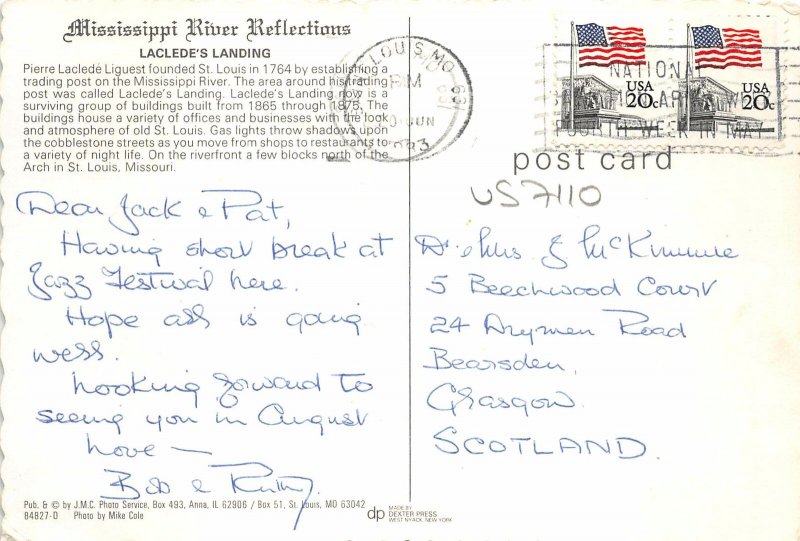 Mississippi River Reflections
LACLEDE'S LANDING
Pierre Laclede Liguest founded St. Louis in 1764 by establishing a
trading post on the Mississippi River. The area around his trading
post was called Laclede's Landing. Laclede's Landing now is a
surviving group of buildings built from 1865 through 1875. The
buildings house a variety of offices and businesses with the look
and atmosphere of old St. Louis. Gas lights throw shadows upon
the cobblestone streets as you move from shops to restaurants to
a variety of night life. On the riverfront a few blocks north of the
Arch in St. Louis, Missouri.
LOUIS MO
PM
JUN
1983
NATIONAL
FOURTH WEEK IN MAY
USA
20c
USA
20c
post card
US 7110
Dear Jack & Pat,
Having short break at
Jazz Festival here.
Hope all is going
well.
Looking forward to
seeing you in August
Love —
Bob &
Dr & Mrs. J McKimmie
5 Beechwood Court
24 Drymen Road
Bearsden,
Glasgow.
SCOTLAND.
Pub. & © by J.M.C. Photo Service, Box 493, Anna, IL 62906 / Box 51, St. Louis, MO 63042
84827-D Photo by Mike Cole
dp
MADE BY
DEXTER PRESS
WEST NYACK, NEW YORK